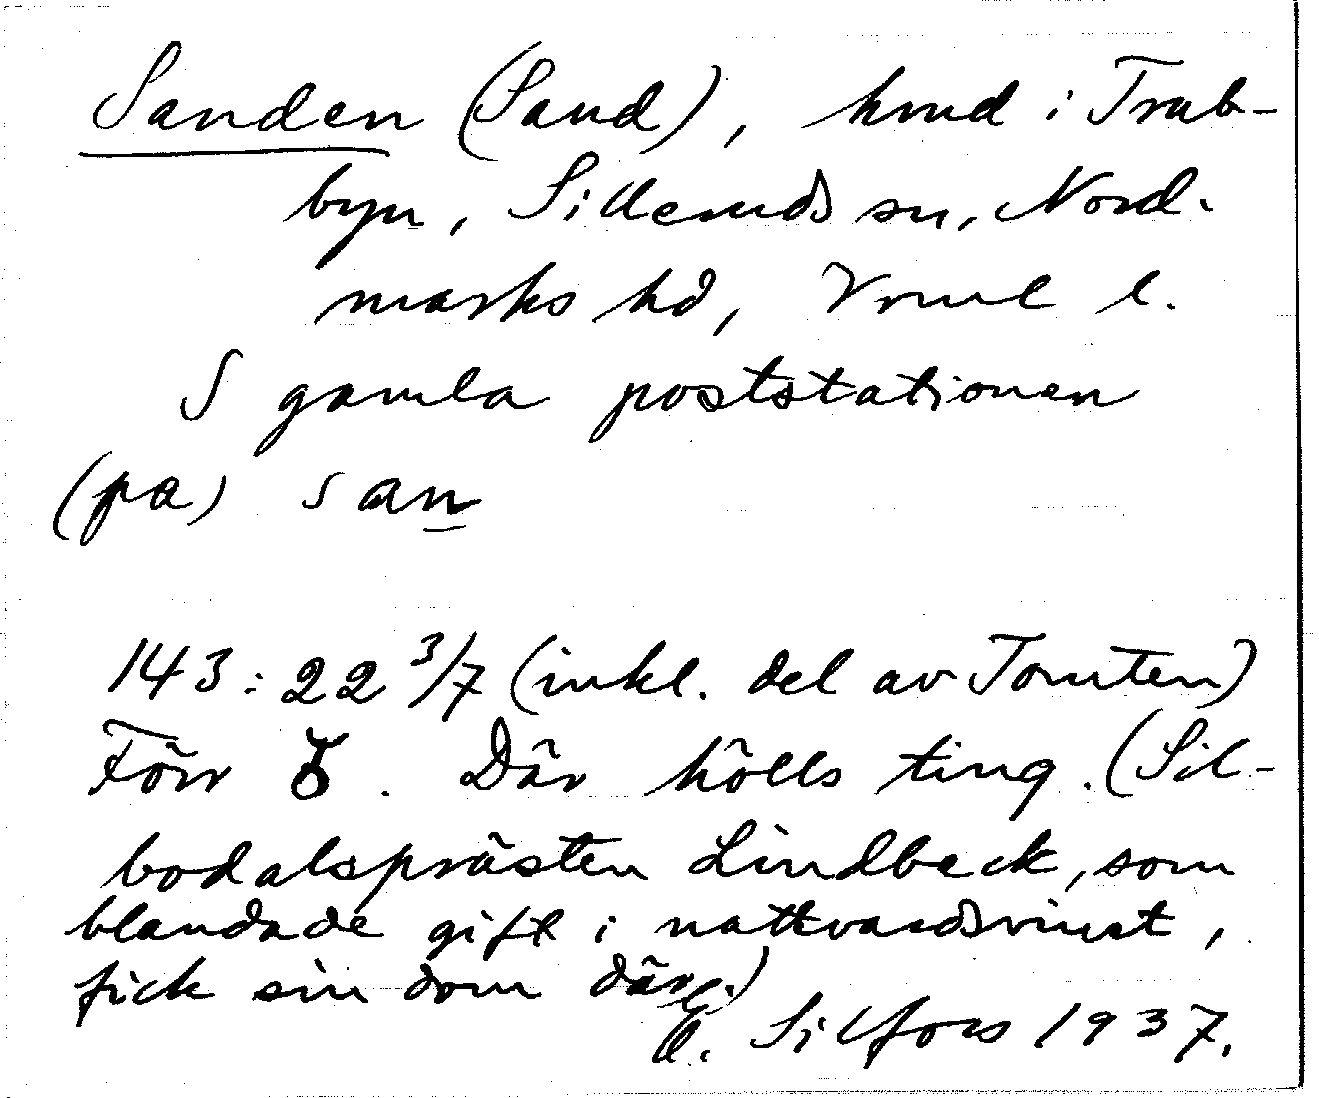 Sanden (Sand), hmd i Trub-
byn, Silleruds sn, Nord-
marks hd, Vrml l.
S gamla poststationen
(pa) san
143:22 3/7 (inkl. del av Tomten)
Förr. Där hölls ting. (Sil-
bodalsprästen Lindbeck, som
blandade gift i nattvardsvinet,
fick sin dom där.)
Silfors 1937.